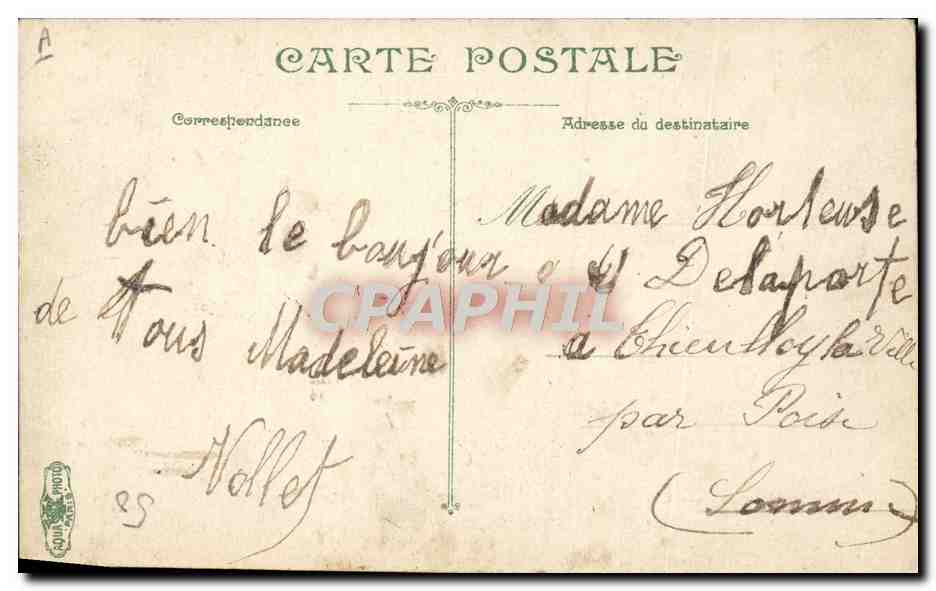 A
CARTE POSTALE
Correspondance
Adresse du destinataire
bien le boujour
de tous Madeleine
Vollet
Madame Horleuse
Delaporte
a Thieulloy la Ville
par Poix
(Somme)
CPAPHIL
AQUA PHOTO
PARIS